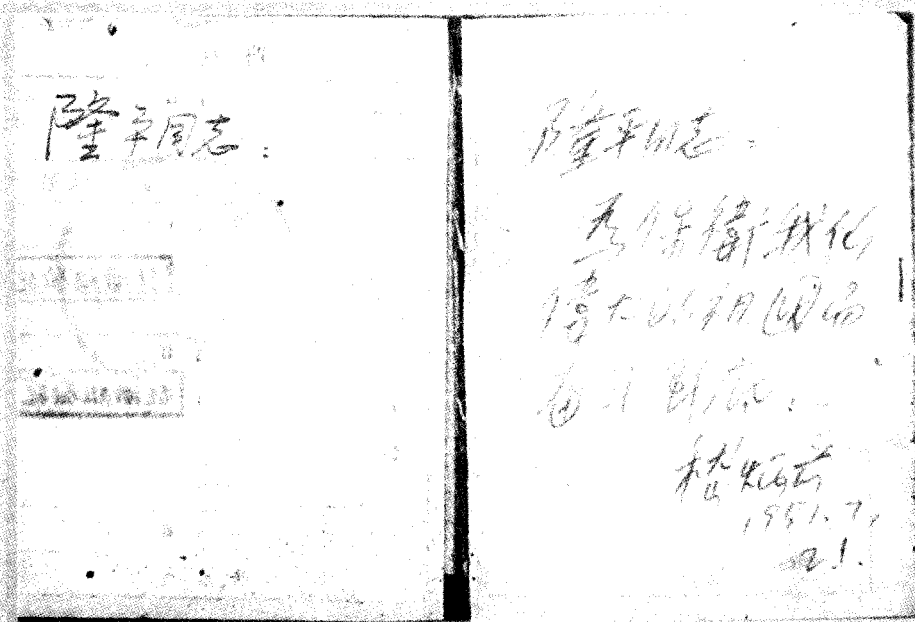 隆平同志：
隆平同志：
為保衛我们
偉大的祖國而
奋斗到底．
1951.7.
21.